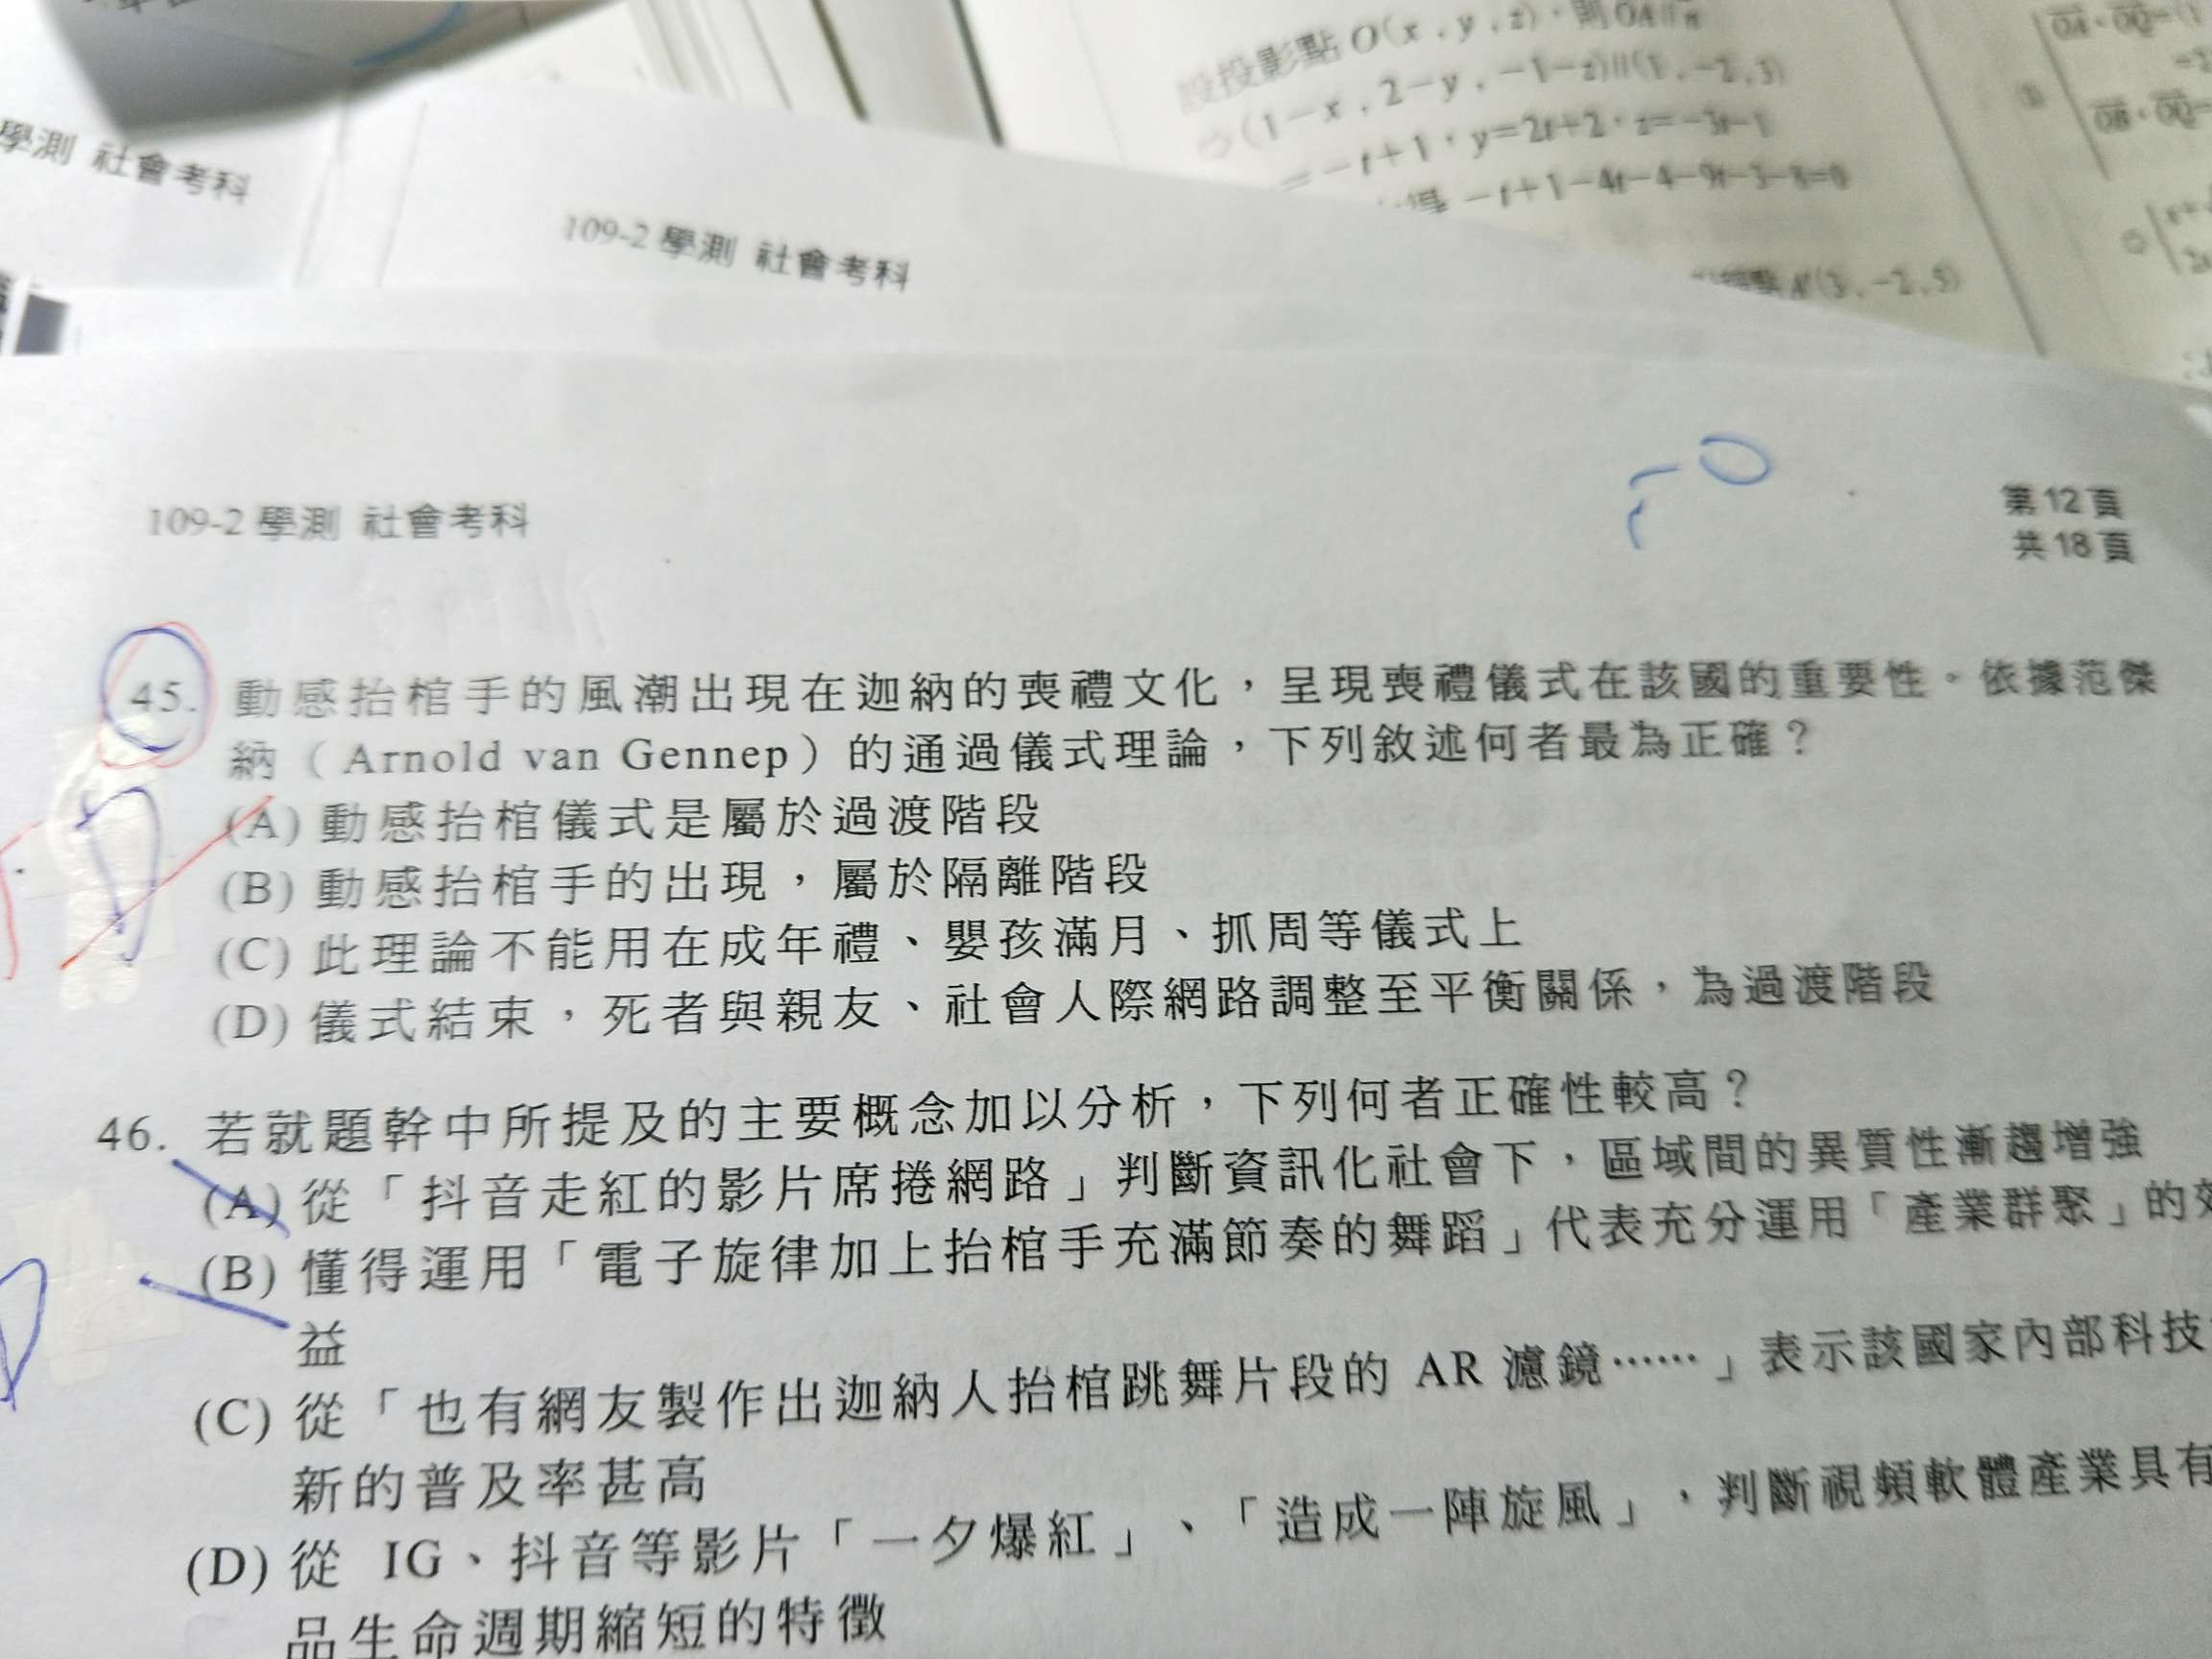 學測 社會考科
109-2 學測 社會考科
設投影點 O(x,y,z),則
(1-x,2-y,-1-z)//(1,-2,3)
=-t+1,y=2t+2,z=-3t-1
-t+1-4t-4-9t-3-8=0
(3,-2,5)
109-2 學測 社會考科
第 12 頁
共 18 頁
45. 動感抬棺手的風潮出現在迦納的喪禮文化,呈現喪禮儀式在該國的重要性。依據范傑
納(Arnold van Gennep)的通過儀式理論,下列敘述何者最為正確?
(A) 動感抬棺儀式是屬於過渡階段
(B) 動感抬棺手的出現,屬於隔離階段
(C) 此理論不能用在成年禮、嬰孩滿月、抓周等儀式上
(D) 儀式結束,死者與親友、社會人際網路調整至平衡關係,為過渡階段
D
46. 若就題幹中所提及的主要概念加以分析,下列何者正確性較高?
(A) 從「抖音走紅的影片席捲網路」判斷資訊化社會下,區域間的異質性漸趨增強
(B) 懂得運用「電子旋律加上抬棺手充滿節奏的舞蹈」代表充分運用「產業群聚」的效
益
(C) 從「也有網友製作出迦納人抬棺跳舞片段的 AR 濾鏡……」表示該國家內部科技
新的普及率甚高
(D) 從 IG、抖音等影片「一夕爆紅」、「造成一陣旋風」,判斷視頻軟體產業具有
品生命週期縮短的特徵
D